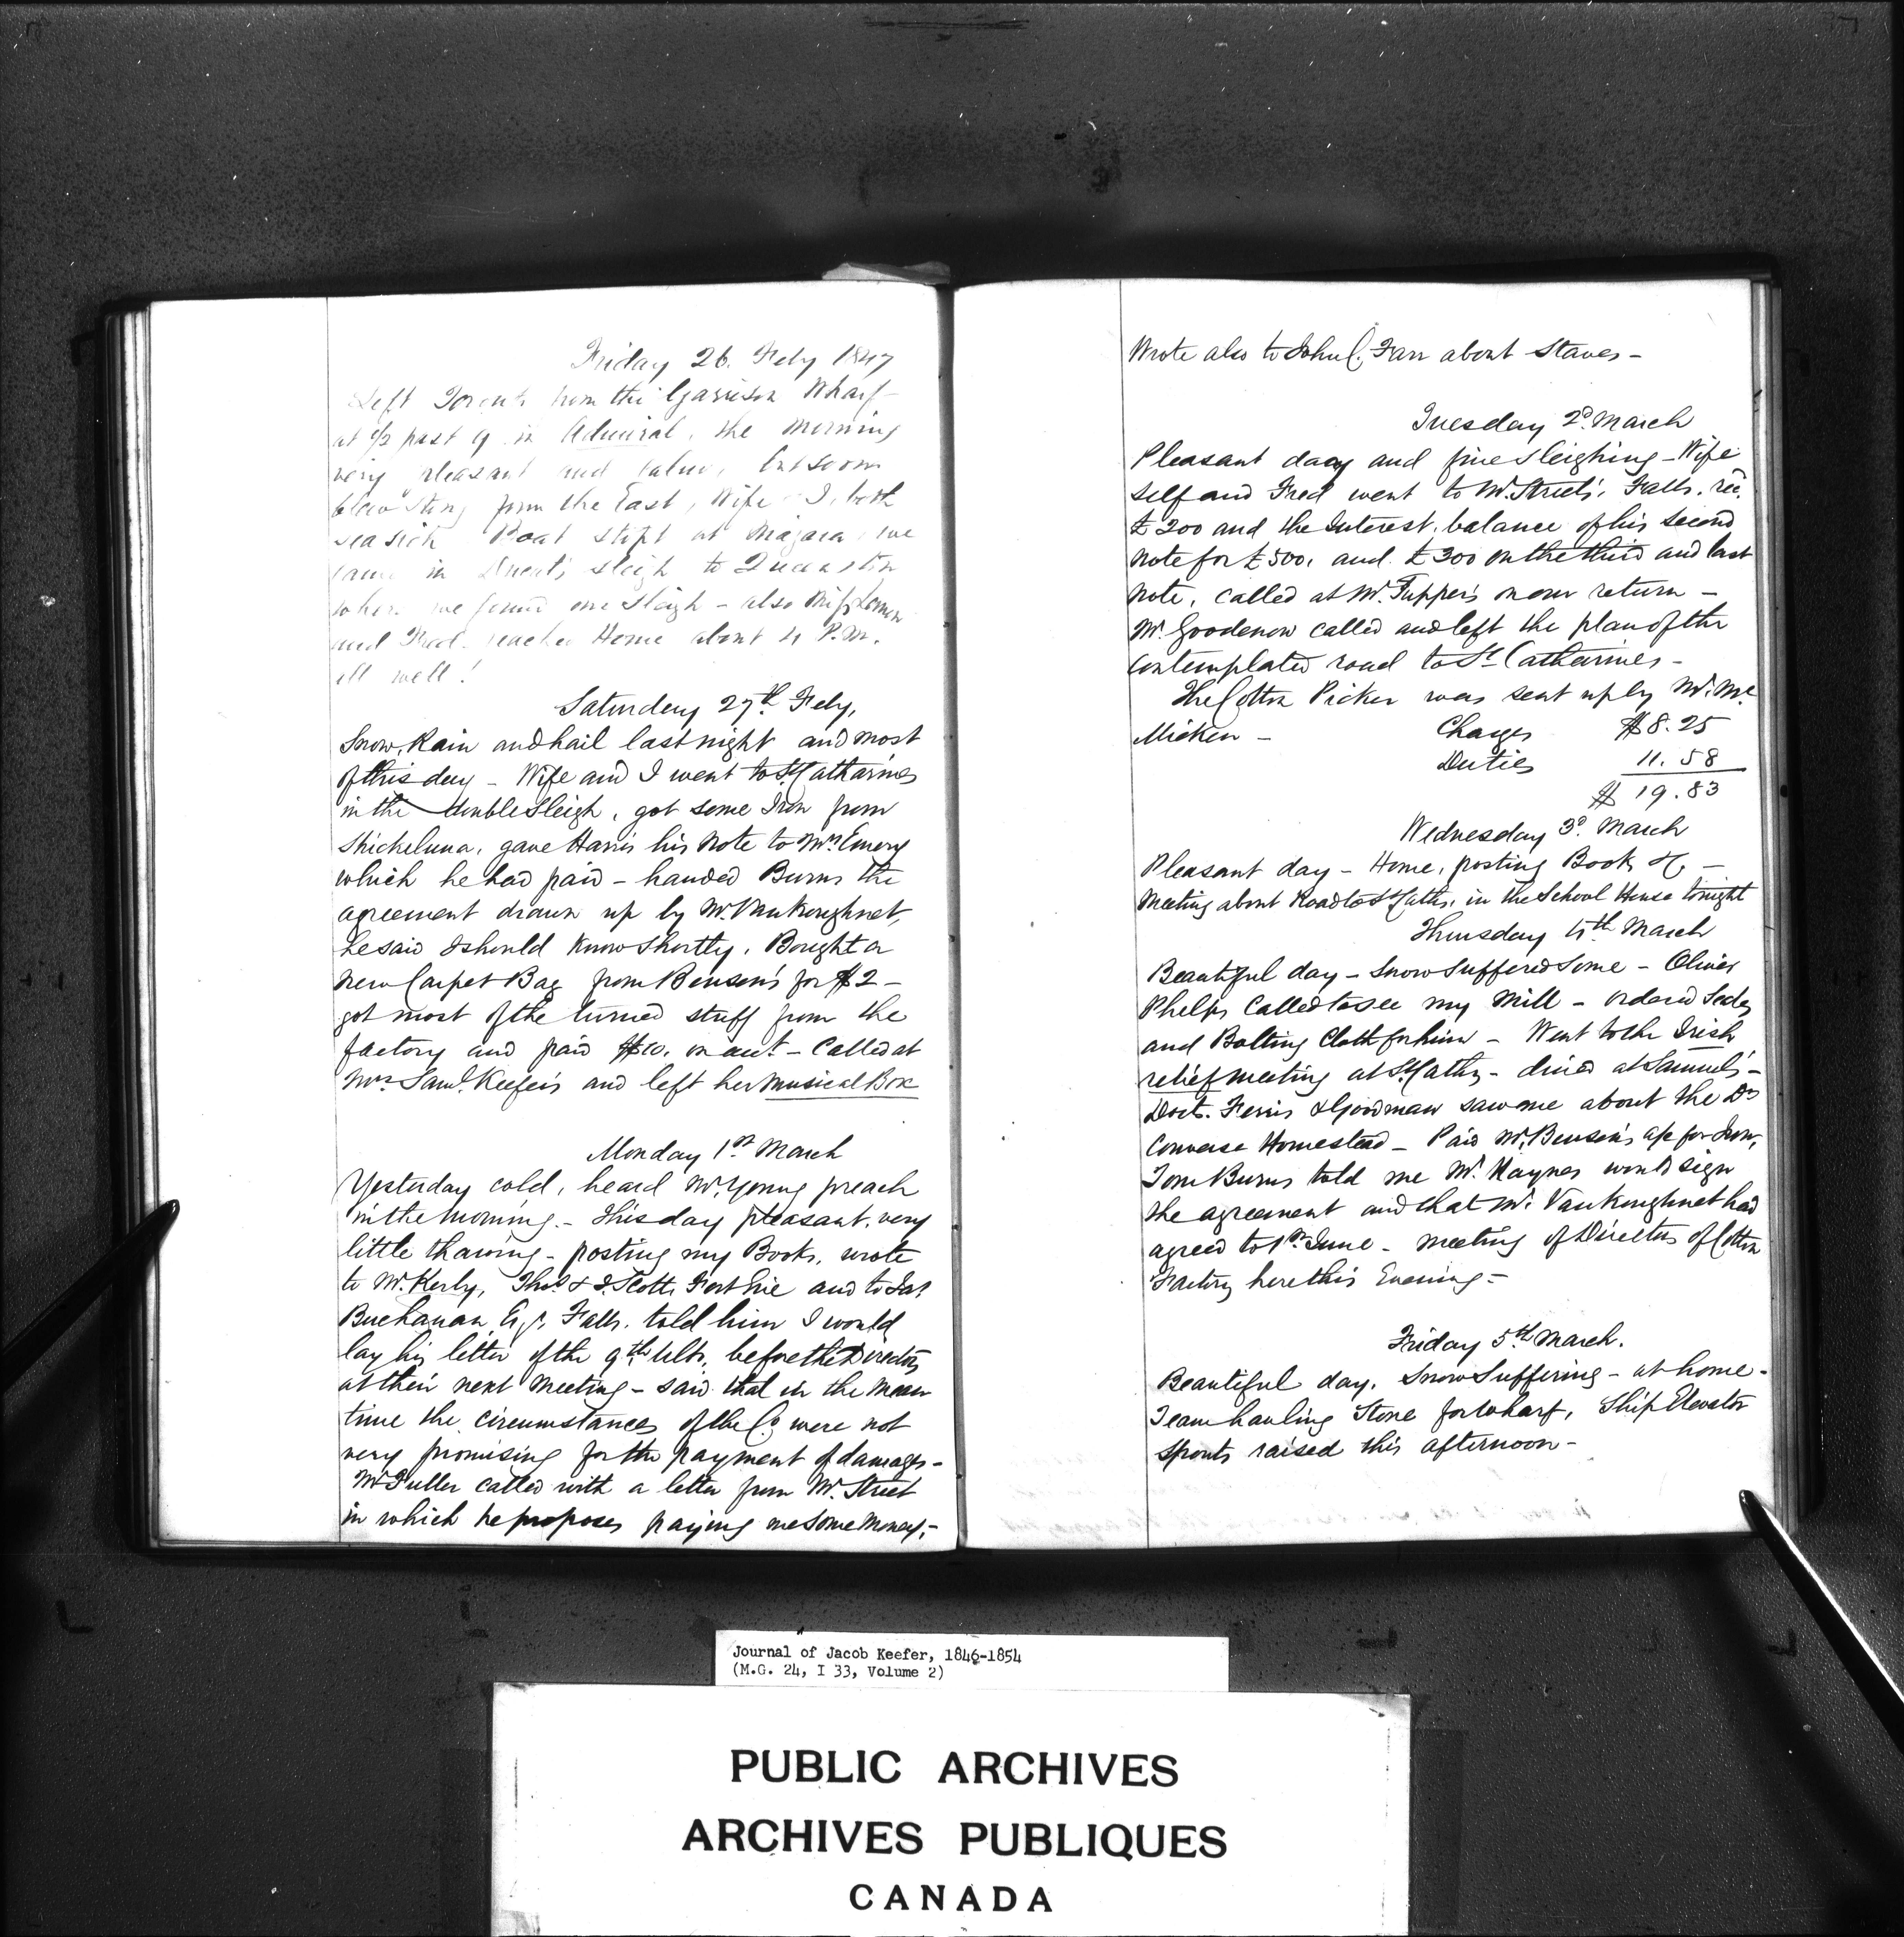 Friday 26. Feby 1847
Left Toronto from the Garrison Wharf
at 1/2 past 9 in Admiral, the morning
very pleasant and calm, but soon
blew strong from the East, Wife & I, both
seasick Boat stopt at Niagara, we
came in sleigh to Queenston
where we found our Sleigh - also Miss
and Fred. reached Home about 4 P.M.
all well!
Saturday 27th Feby,
Snow, Rain and hail last night and most
of this day - Wife and I went to St Catharines
in the double sleigh, got some Iron from
Shickeluna, gave Harris his Note to Mrs Emery
which he had paid - handed Burns the
agreement drawn up by Mr. VanKoughnet,
he said I should know shortly. Bought a
new Carpet Bag from Benson's for $2 -
got most of the turned stuff from the
factory and paid $10. on acct - Called at
Mrs Saml. Keefer's and left her Musical Box
Monday 1st March
Yesterday cold, heard Mr. Young preach
in the morning. - This day pleasant, very
little thawing - posting my Books, wrote
to Mr. Kerby, Thos. & J. Scott, Fort Erie and to Jas.
Buchanan Esqr. Falls. told him I would
lay his letter of the 9th Ulto. before the Directors
at their next Meeting - said that in the mean
time the circumstances of the Co. were not
very promising for the payment of damages -
Mr Fuller called with a letter from Mr. Street
in which he proposes paying me some Money, -
Wrote also to John C. Farr about Staves -
Tuesday 2d. March
Pleasant day and fine sleighing - Wife
self and Fred went to Mr. Street's, Falls. rec.
£200 and the Interest, balance of his second
note for £500, and £300 on the third and last
Note, called at Mr. Tupper's on our return -
Mr. Goodenow called and left the plan of the
contemplated road to St Catharines -
The Cotton Picker was sent up by Mr. Mc
Micken - Charges $8.25
Duties 11.58
$ 19.83
Wednesday 3d. March
Pleasant day - Home, posting Books &c -
Meeting about Road to St Caths. in the School House tonight
Thursday 4th March
Beautiful day - Snow suffered some - Oliver
Phelps called to see my Mill - ordered
and Bolting Cloth for him - Went to the Irish
relief meeting at St. Caths - dined at Samuel's -
Doct. Ferris & Goodman saw me about the Dr
Converse Homestead - Paid Mr. Benson's a/c for Iron,
Tom Burns told me Mr. Haynes would sign
the agreement and that Mr. VanKoughnet had
agreed to 1st June - meeting of Directors of Cotton
Factory here this Evening -
Friday 5th March.
Beautiful day, Snow suffering - at home -
Team hauling Stone for Wharf, Ship Elevator
spouts raised this afternoon -
Journal of Jacob Keefer, 1846-1854
(M.G. 24, I 33, Volume 2)
PUBLIC ARCHIVES
ARCHIVES PUBLIQUES
CANADA